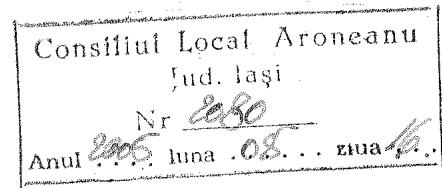 Consiliul Local Aroneanu
Jud. Iași
Nr 2080
Anul 2006 luna .08... ziua 16.